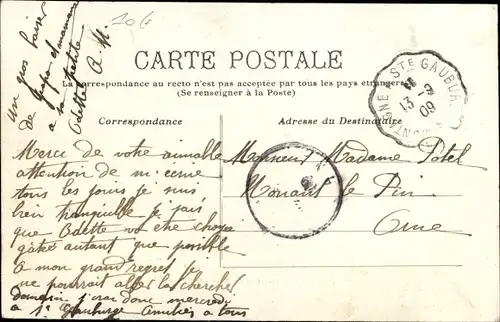 106
un gros baiser
de Papa et maman
a sa petite
Odette A. M.
CARTE POSTALE
La correspondance au recto n'est pas acceptée par tous les pays étrangers
(Se renseigner à la Poste)
STE GAUBURGE
MORTAGNE
13 -9
09
Correspondance
Adresse du Destinataire
Merci de votre aimable
attention de m'
tous les jours je suis
bien tranquille je sais
que Odette va etre choyé
gâté autant que possible
a mon grand regret je
ne pourrait aller la chercher
demain j'irai donc mercredi
a Ste Gauburge Amitiés a tous
Monsieur Madame Potel
Nonant le Pin
Orne